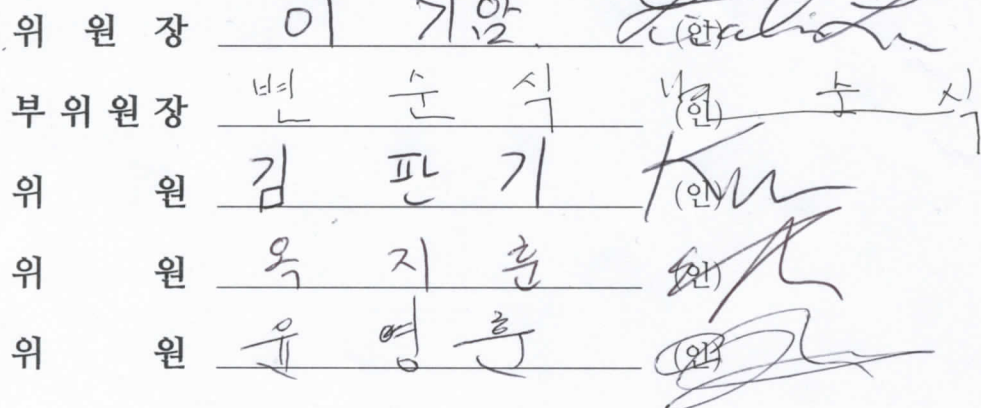 위 원 장 이 기암 (인)
부 위 원 장 변 순 식 (인) 변 순 식
위 원 김 판 기 (인)
위 원 옥 지 훈 (인)
위 원 윤 영 훈 (인)